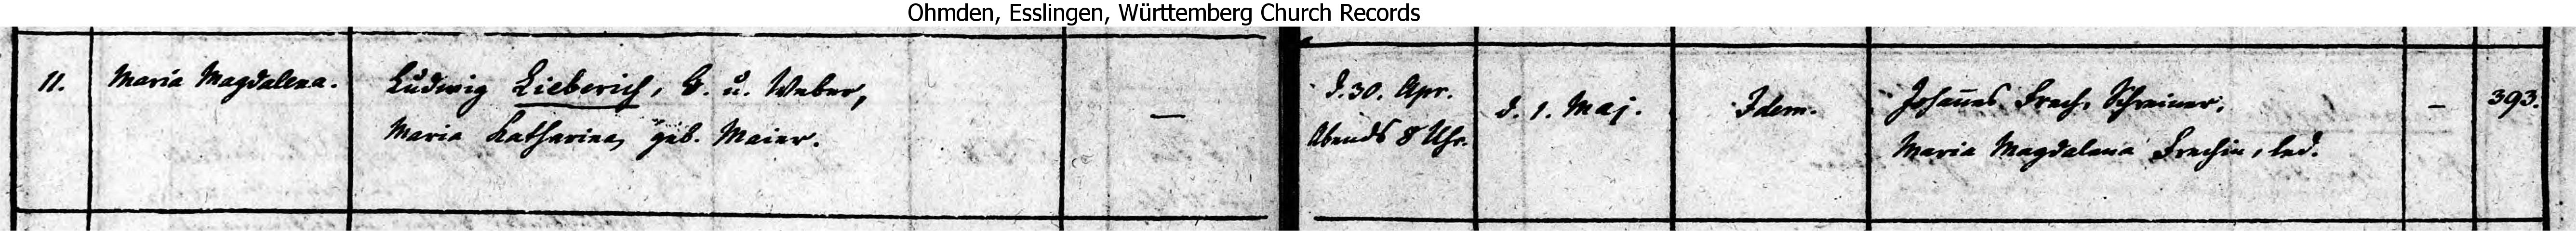 Ohmden, Esslingen, Württemberg Church Records
11.
Maria Magdalena.
Ludwig Lieberich, B. u. Weber,
Maria Katharina, geb. Maier.
—
d. 30. Apr.
Abends 8 Uhr.
d. 1. Maj.
Idem.
Johannes Frech, Schreiner,
Maria Magdalena Frechin, led.
—
393.